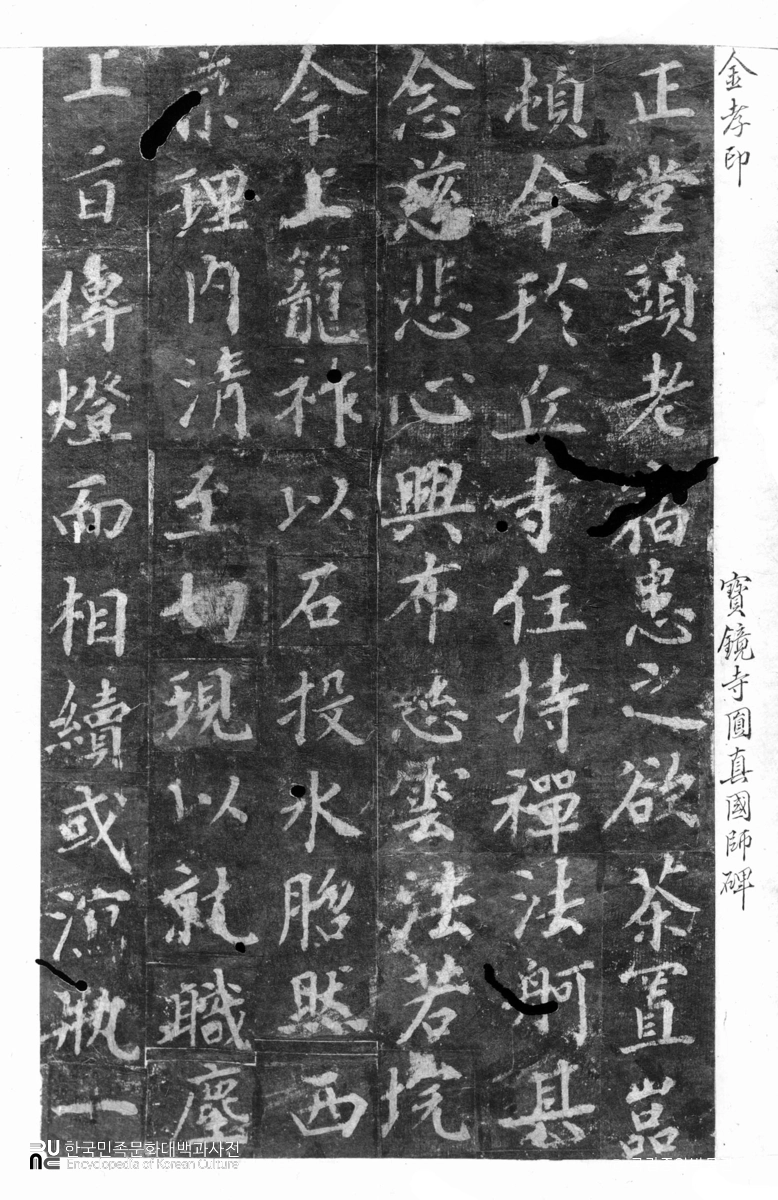 金孝印 寶鏡寺圓真國師碑
正堂頭老宿患之欲茶置嵓
頓今珎丘寺住持禪法舸其
念慈悲心興布慈雲法若垸
今上籠祚以石投水脗然西
京理內清至切現以就職塵
上言傳燈而相續或演執一
한국민족문화대백과사전
Encyclopedia of Korean Culture